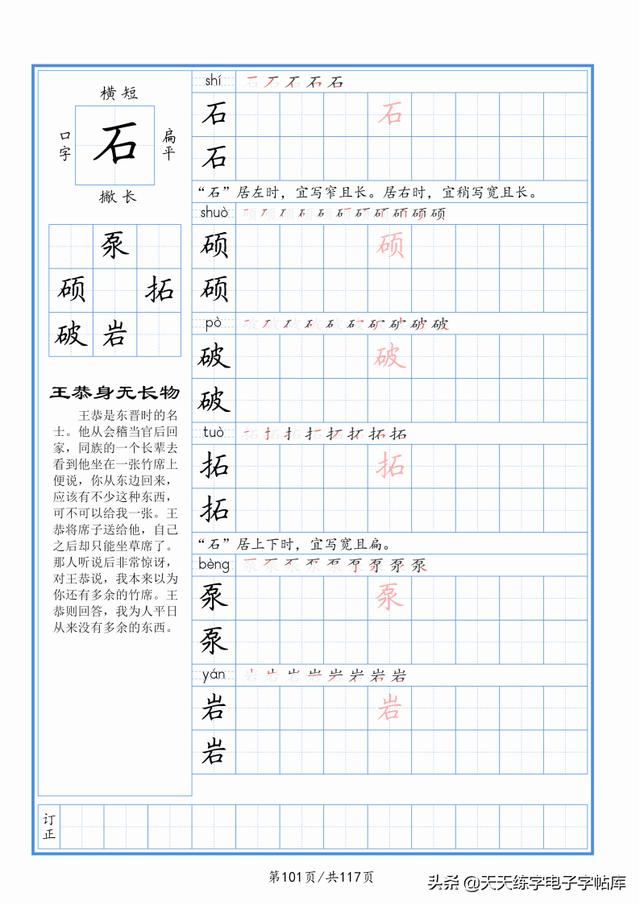 横短
口字
石
扁平
撇长
泵
硕 拓
破 岩
王恭身无长物
王恭是东晋时的名
士。他从会稽当官后回
家，同族的一个长辈去
看到他坐在一张竹席上
便说，你从东边回来，
应该有不少这种东西，
可不可以给我一张。王
恭将席子送给他，自己
之后却只能坐草席了。
那人听说后非常惊讶，
对王恭说，我本来以为
你还有多余的竹席。王
恭则回答，我为人平日
从来没有多余的东西。
shí
石 石
石
“石”居左时，宜写窄且长。居右时，宜稍写宽且长。
shuò
硕 硕
硕
pò
破 破
破
tuò
拓 拓
拓
“石”居上下时，宜写宽且扁。
bèng
泵 泵
泵
yán
岩 岩
岩
订正
第101页/共117页
头条 @天天练字电子字帖库